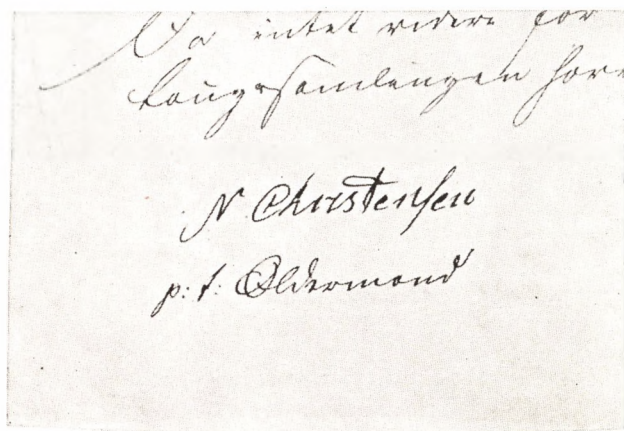 Da intet videre for
Laugssamlingen hav
N Christensen
p: t: Oldermand